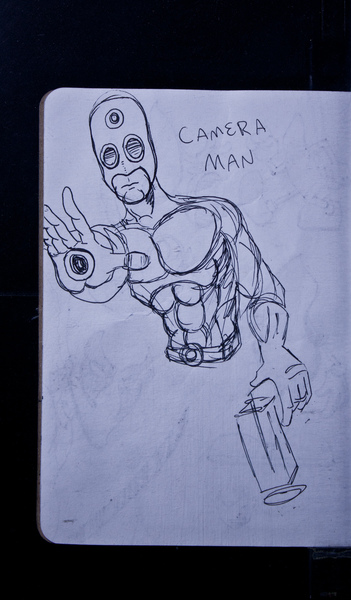 CAMERA
MAN